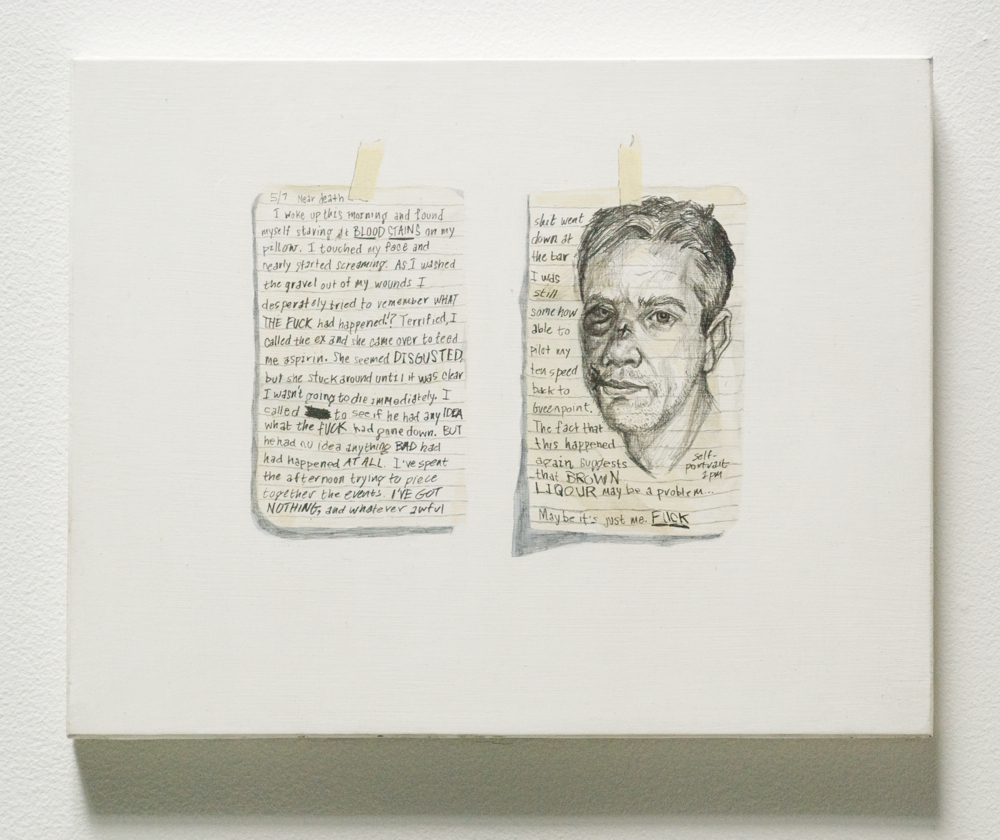 5/7 Near death
I woke up this morning and found
myself staring at BLOOD STAINS on my
pillow. I touched my face and
nearly started screaming. As I washed
the gravel out of my wounds I
desperately tried to remember WHAT
THE FUCK had happened!? Terrified, I
called the ex and she came over to feed
me aspirin. She seemed DISGUSTED,
but she stuck around until it was clear
I wasn't going to die immediately. I
called to see if he had any IDEA
what the fUCK had gone down. BUT
he had no idea anything BAD had
had happened AT ALL. I've spent
the afternoon trying to piece
together the events. I'VE GOT
NOTHING, and whatever awful
shit went
down at
the bar
I was
still
somehow
able to
pilot my
ten speed
back to
Greenpoint.
The fact that
this happened
again suggests
that BROWN
LIQOUR may be a problem...
Maybe it's just me. FUCK
self-
portrait
2pm